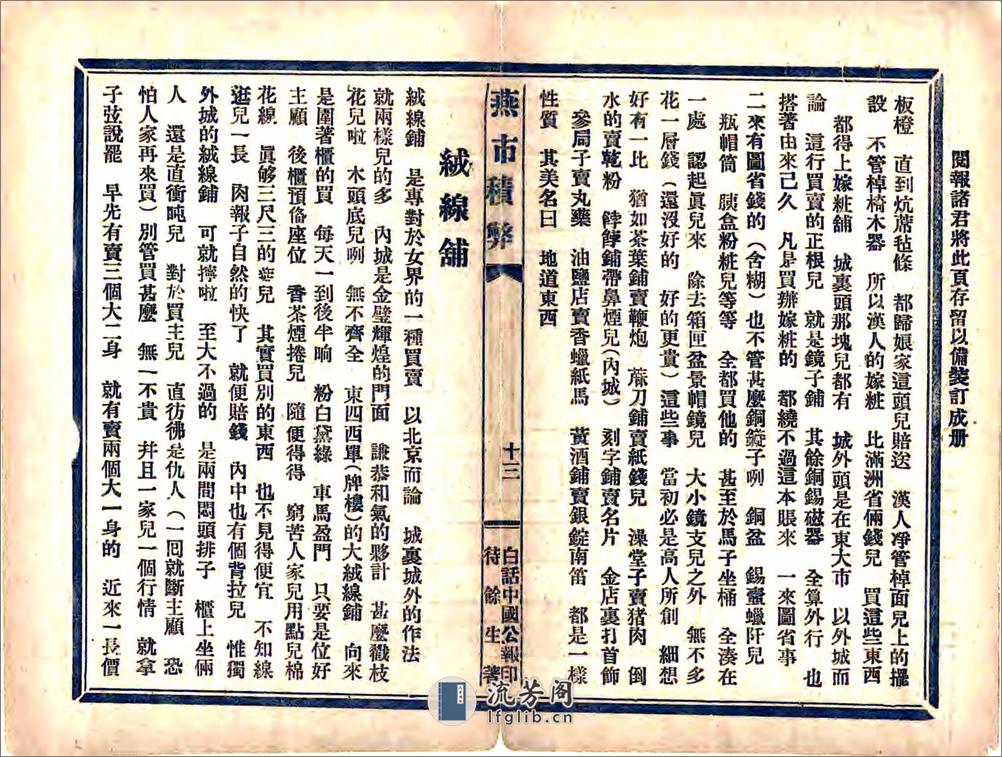 閱報諸君將此頁存留以備裝訂成册
板櫈　直到炕蓆毡條　都歸娘家這頭兒賠送　漢人凈管棹面兒上的擺
設　不管棹椅木器　所以漢人的嫁粧　比滿洲省倆錢兒　買這些東西
都得上嫁粧舖　城裏頭那塊兒都有　城外頭是在東大市　以外城而
論　這行買賣的正根兒　就是鏡子鋪　其餘銅錫磁器　全算外行　也
搭著由來已久　凡是買辦嫁粧的　都繞不過這本賬來　一來圖省事
二來有圖省錢的（含糊）也不管甚麼銅鏇子咧　銅盆　錫蠟蠟阡兒
瓶帽筒　胰盒粉粧兒等等　全都買他的　甚至於馬子坐桶　全湊在
一處　認起眞兒來　除去箱匣盆景帽鏡兒　大小鏡支兒之外　無不多
花一層錢（還沒好的　好的更貴）這些事　當初必是高人所創　細想
好有一比　猶如茶葉鋪賣鞭炮　蔴刀鋪賣紙錢兒　澡堂子賣猪肉　倒
水的賣乾粉　餑餑鋪帶鼻煙兒（內城）刻字鋪賣名片　金店裏打首飾
參局子賣丸藥　油鹽店賣香蠟紙馬　黃酒鋪賣銀錠南笛　都是一樣
性質　其美名曰　地道東西
燕市積弊
十三
白話中國公報印
待餘生著
絨線舖
絨線鋪　是專對於女界的一種買賣　以北京而論　城裏城外的作法
就兩樣兒的多　內城是金璧輝煌的門面　謙恭和氣的夥計　甚麼戳枝
花兒啦　木頭底兒咧　無不齊全　東四西單（牌樓）的大絨線鋪　向來
是圍著櫃的買　每天一到後半晌　粉白黛綠　車馬盈門　只要是位好
主顧　後櫃預俻座位　香茶煙捲兒　隨便得得　窮苦人家兒用點兒棉
花線　眞够三尺三的莛兒　其實買別的東西　也不見得便宜　不知線
逛兒一長　肉報子自然的快了　就便賠錢　內中也有個背拉兒　惟獨
外城的絨線鋪　可就擰啦　至大不過的　是兩間悶頭排子　櫃上坐倆
人　還是直衝盹兒　對於買主兒　直彷彿是仇人（一囘就斷主顧　恐
怕人家再來買）別管買甚麼　無一不貴　幷且一家兒一個行情　就拿
子弦說罷　早先有賣三個大二身　就有賣兩個大一身的　近來一長價
流芳阁
lfglib.cn